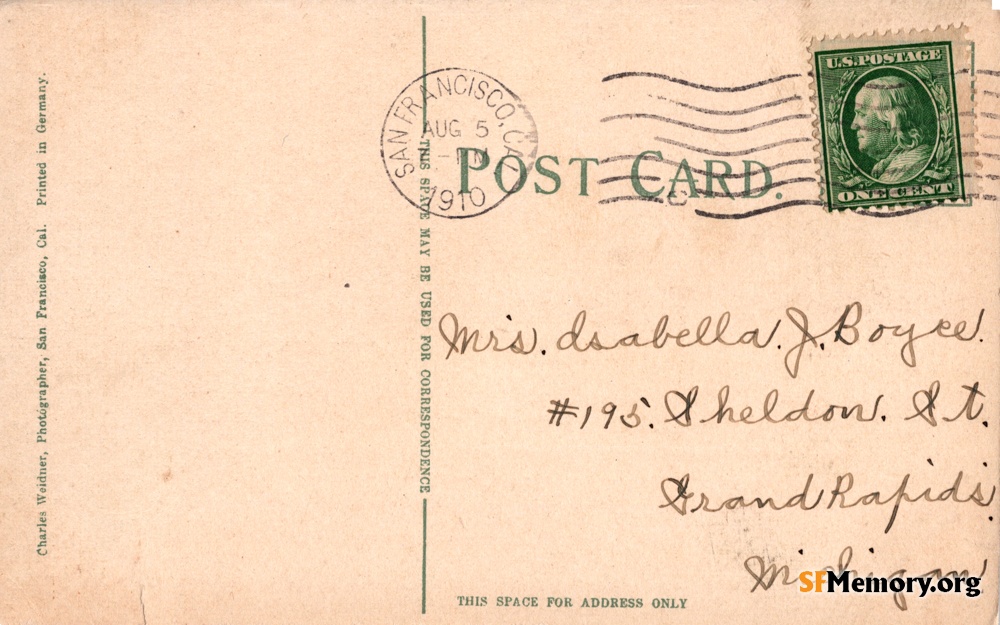 Charles Weidner, Photographer, San Francisco, Cal. Printed in Germany.
THIS SPACE MAY BE USED FOR CORRESPONDENCE
SAN FRANCISCO, CAL
AUG 5
1910
POST CARD.
U.S. POSTAGE
ONE CENT
Mrs. Isabella. J. Boyce.
#195. Sheldon. St.
Grand Rapids,
Michigan
SFMemory.org
THIS SPACE FOR ADDRESS ONLY